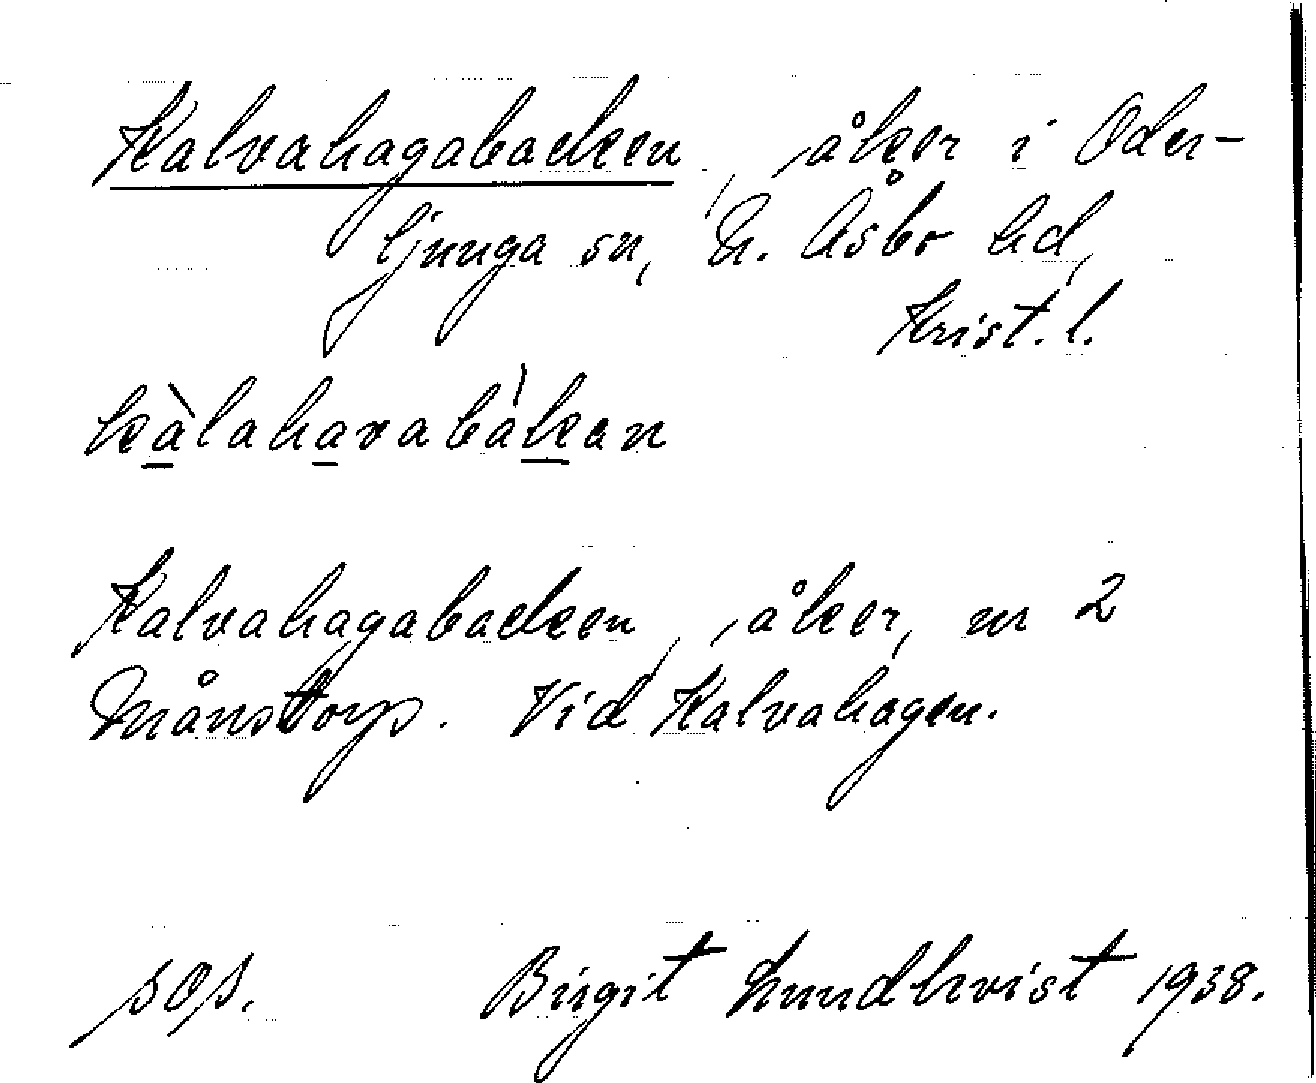 Kalvahagabacken, åker i Oder-
ljunga sn, N. Åsbo hd,
Krist. l.
kàlahavabákan
Kalvahagabacken, åker, nr 2
Månstorp. Vid Kalvahagen.
Birgit Lundkvist 1938.